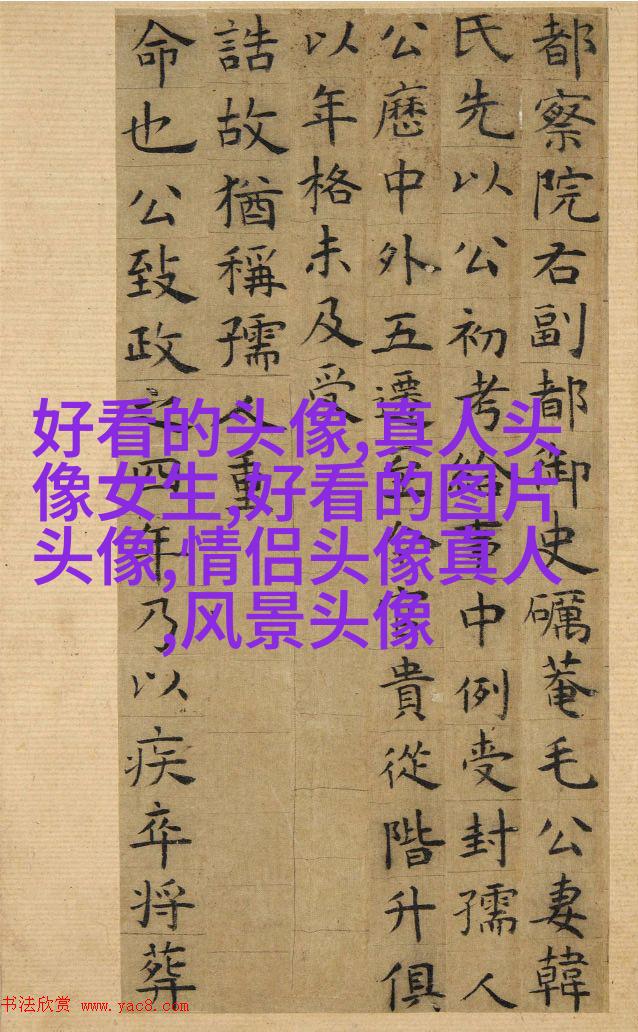 都察院右副都御史礪菴毛公妻韓
氏先以公初考給事中例受封孺人
公歷中外五遷至今官貴從階升俱
以年格未及受
誥故猶稱孺人重
命也公致政之四年乃以疾卒将葬
好看的头像,真人头
像女生,好看的图片
头像,情侣头像真人
,风景头像
书法欣赏 www.yac8.com